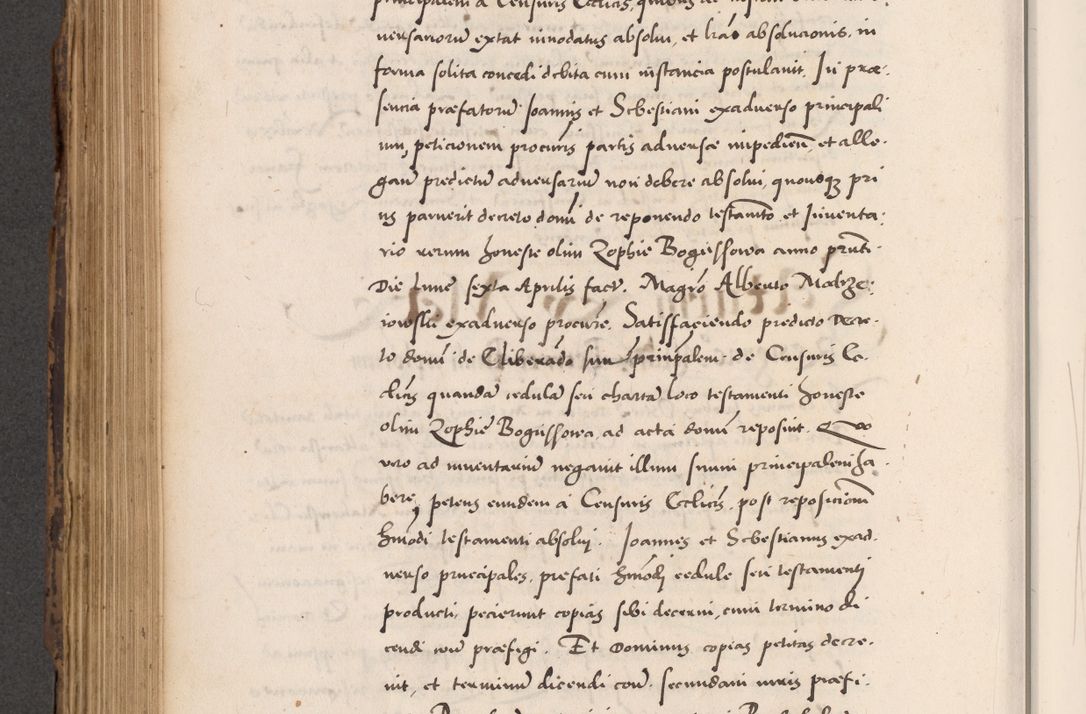 principalem a Censuris Ecclicis, quibus
uersariorũ extat innodatus absolui, et lrãs absolucionis in
forma solita concedi debita cum instancia postulauit. In præ-
sencia præfatorũ Joannis et Sebestiani exaduerso principali
um, peticionem procuris partis aduersæ impedieñ, et alle-
gañ predictũ aduersariũ non debere absolui, quousq; pri
us paruerit decreto domĩ de reponendo testamto et Inuenta-
rio rerum honeste olim Zophie Bogussowa anno prñti
Die lune sexta Aprilis fact. Magro Alberto Malrze-
iowski exaduerso procure. Satisfaciendo predicto decre-
to domĩ de liberãdo suu principalem de Censuris Ec-
clicis quandã cedulam seu chartã loco testamenti honeste
olim Zophie Bogussowa, ad acta domĩ reposuit. Quo
uero ad inuentariũ negauit illum suum principalem ha-
bere, petens eundem a Censuris Ecclicis post reposicionem
hmõdi testamenti absolui. Joannes et Sebestianus exad-
uerso principales, prefati hmõdj cedule seu testamentj
producti, pecierunt copias sibi decerni, cum termino di
cendi contũ præfigi. Et Dominus copias petitas decre-
uit, et terminum dicendi contr. secundam iuris præfi-